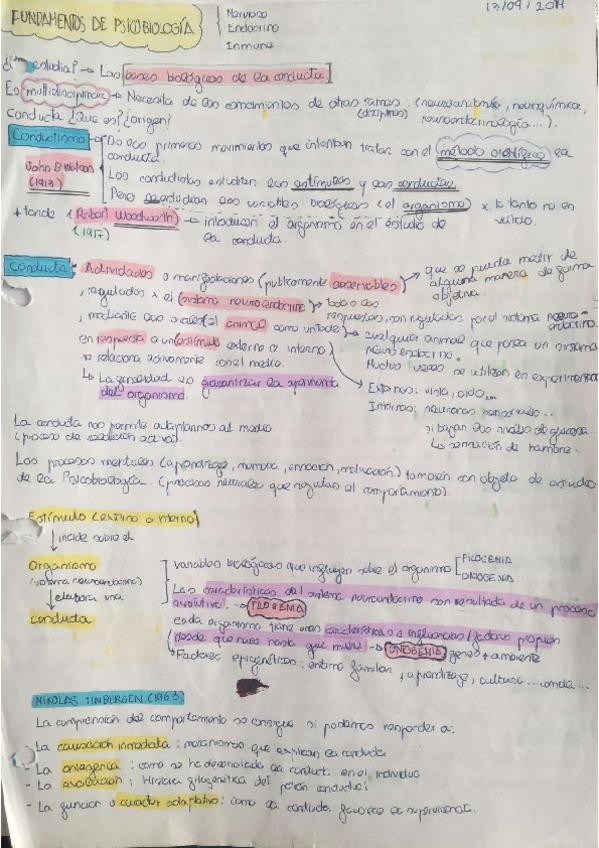 13/09/2011
FUNDAMENTOS DE PSICOBIOLOGÍA
Nervioso
Endocrino
Inmune
estudia? → Las bases biológicas de la conducta
Es multidisciplinar → Necesita de los conocimientos de otras ramas: (neuroanatomía, neuroquímica,
(disciplinas) neuroendocrinología...).
Conducta ¿Qué es? ¿origen?
Conductismo → De los primeros movimientos que intentan tratar con el método científico la
conducta.
John B Watson
(1913)
Los conductistas estudian los estímulos y las conductas.
Pero no estudian las variables biológicas (el organismo) x lo tanto no es
válido.
+ tarde (Robert Woodworth) → introducen el organismo en el estudio de
(1917) la conducta.
Conducta: Actividades o manifestaciones (públicamente observables) → que se pueda medir de
alguna manera de forma
objetiva.
, reguladas x el sistema neuroendocrino → todas las
respuestas, son reguladas por el sistema neuro-
endocrino.
, mediante las cuales el animal como un todo → cualquier animal que posea un sistema
neuroendocrino.
Muchas veces se utilizan en experimentos
en respuesta a un estímulo externo o interno
se relaciona activamente con el medio.
→ Externos: vista, oído...
Internos: neuronas sensoriales...
si bajan los niveles de glucosa...
↳ sensación de hambre.
↳ La finalidad es garantizar la supervivencia
del organismo
La conducta nos permite adaptarnos al medio
(proceso de selección activa).
Los procesos mentales (aprendizaje, memoria, emoción, motivación) también son objeto de estudio
de la Psicobiología. (procesos neurales que regulan el comportamiento).
Estímulo (externo o interno)
↓ incide sobre el
Organismo
(sistema neuroendocrino)
↓ elabora una
Conducta
variables biológicas que influyen sobre el organismo [FILOGENIA
ONTOGENIA
Las características del sistema neuroendocrino son resultado de un proceso
evolutivo. → FILOGENIA
cada organismo tiene unas características o influencias/factores propios
desde que nace hasta que muere → ONTOGENIA genes + ambiente
↳ Factores epigenéticos: entorno familiar, aprendizaje, cultura...
NIKOLAS TINBERGEN (1963)
La comprensión del comportamiento se consigue si podemos responder a:
- La causación inmediata: mecanismos que explican la conducta
- La ontogenia: como se ha desarrollado la conducta en el individuo
- La evolución: Historia filogenética del patrón conductual
- La función o caracter adaptativo: como la conducta favorece la supervivencia.